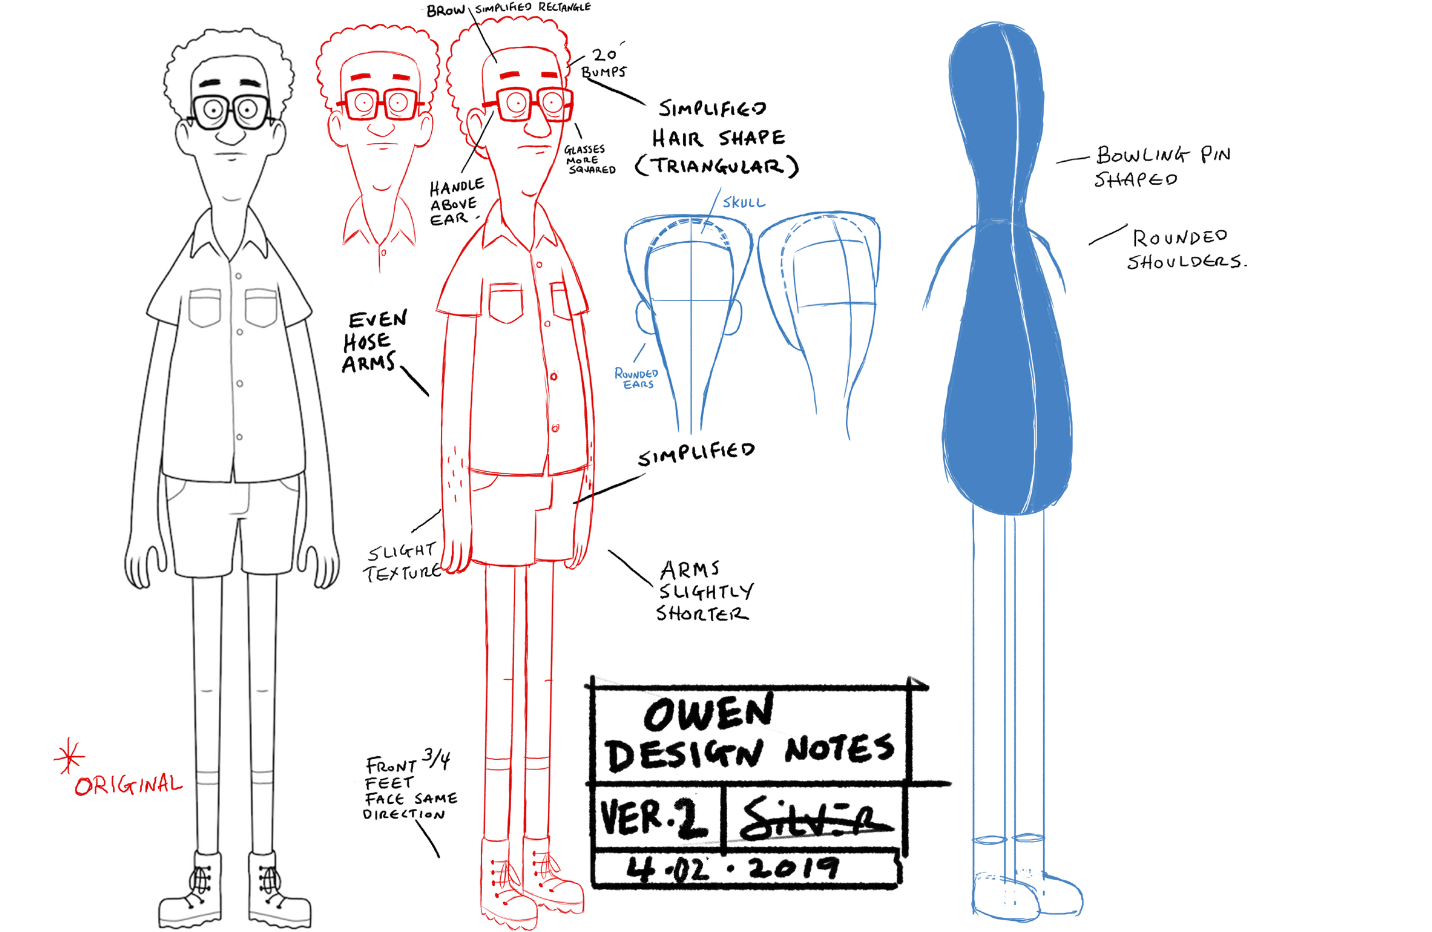 BROW SIMPLIFIED RECTANGLE
20'
BUMPS
SIMPLIFIED
HAIR SHAPE
(TRIANGULAR)
GLASSES
MORE
SQUARED
HANDLE
ABOVE
EAR.
SKULL
BOWLING PIN
SHAPED
ROUNDED
SHOULDERS.
EVEN
HOSE
ARMS
ROUNDED
EARS
SIMPLIFIED
SLIGHT
TEXTURE
ARMS
SLIGHTLY
SHORTER
*
ORIGINAL
FRONT 3/4
FEET
FACE SAME
DIRECTION
OWEN
DESIGN NOTES
VER.2
SILVER
4.02.2019